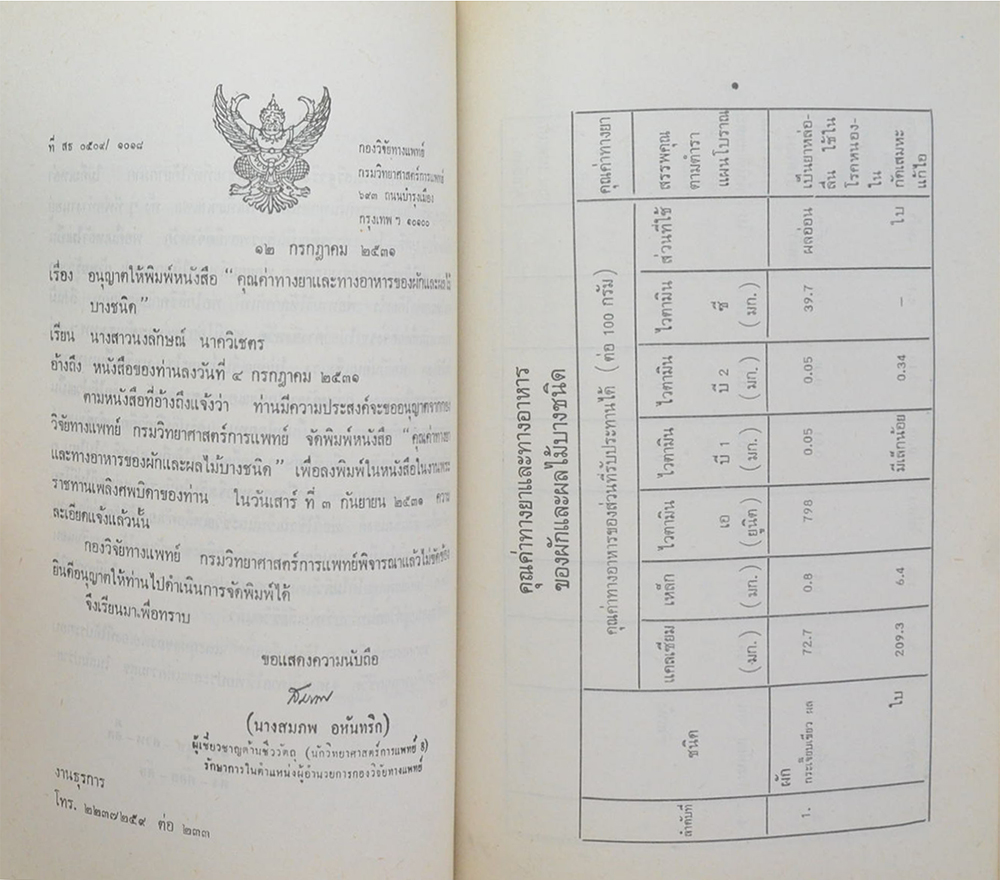 ที่ สธ ๐๕๐๔/ ๑๐๑๘
กองวิจัยทางแพทย์
กรมวิทยาศาสตร์การแพทย์
๖๙๓ ถนนบำรุงเมือง
กรุงเทพ ฯ ๑๐๑๐๐
๑๒ กรกฎาคม ๒๕๓๑
เรื่อง อนุญาตให้พิมพ์หนังสือ "คุณค่าทางยาและทางอาหารของผักและผลไม้
บางชนิด"
เรียน นางสาวนงลักษณ์ นาควิเชตร
อ้างถึง หนังสือของท่านลงวันที่ ๔ กรกฎาคม ๒๕๓๑
ตามหนังสือที่อ้างถึงแจ้งว่า ท่านมีความประสงค์จะขออนุญาตจากกอง
วิจัยทางแพทย์ กรมวิทยาศาสตร์การแพทย์ จัดพิมพ์หนังสือ "คุณค่าทางยา
และทางอาหารของผักและผลไม้บางชนิด" เพื่อลงพิมพ์ในหนังสือในงานพระ
ราชทานเพลิงศพบิดาของท่าน ในวันเสาร์ ที่ ๓ กันยายน ๒๕๓๑ ความ
ละเอียดแจ้งแล้วนั้น
กองวิจัยทางแพทย์ กรมวิทยาศาสตร์การแพทย์พิจารณาแล้วไม่ขัดข้อง
ยินดีอนุญาตให้ท่านไปดำเนินการจัดพิมพ์ได้
จึงเรียนมาเพื่อทราบ
ขอแสดงความนับถือ
(นางสมภพ อหันทริก)
ผู้เชี่ยวชาญด้านชีววัตถุ (นักวิทยาศาสตร์การแพทย์ 8)
รักษาการในตำแหน่งผู้อำนวยการกองวิจัยทางแพทย์
งานธุรการ
โทร. ๒๒๓๗๒๕๙ ต่อ ๒๓๓
คุณค่าทางยาและทางอาหาร
ของผักและผลไม้บางชนิด
คุณค่าทางอาหารของส่วนที่รับประทานได้ (ต่อ 100 กรัม) คุณค่าทางยา
ลำดับที่ ชนิด แคลเซียม (มก.) เหล็ก (มก.) ไวตามิน เอ (ยูนิต) ไวตามิน บี 1 (มก.) ไวตามิน บี 2 (มก.) ไวตามิน ซี (มก.) ส่วนที่ใช้ สรรพคุณ ตามตำรา แผนโบราณ
ผัก
1. กระเจี๊ยบเขียว ผล 72.7 0.8 798 0.05 0.05 39.7 ผลอ่อน เป็นยาหล่อ-
ลื่น ใช้ใน
โรคหนอง-
ใน
ใบ 209.3 6.4 มีเล็กน้อย 0.34 — ใบ กัดเสมหะ
แก้ไอ